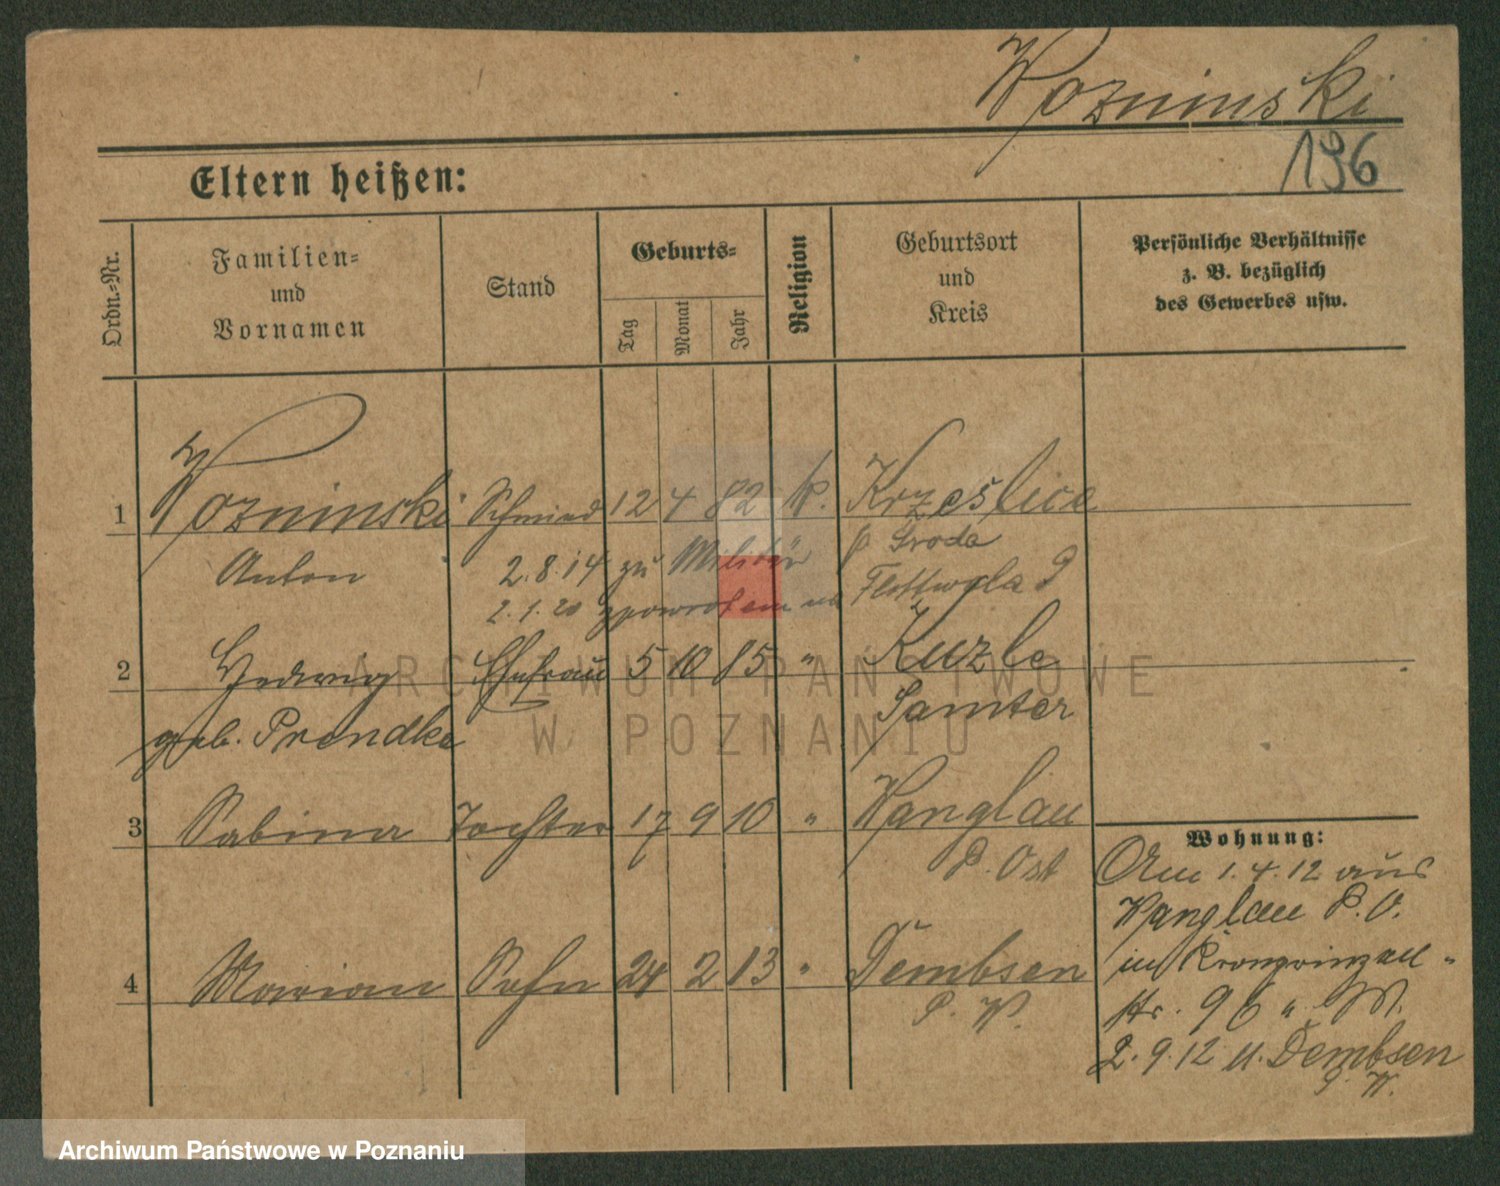 Wozninski
196
Eltern heißen:
Ordn.-Nr.
Familien- und Vornamen
Stand
Geburts-
Tag
Monat
Jahr
Religion
Geburtsort und Kreis
Persönliche Verhältnisse
z. B. bezüglich
des Gewerbes usw.
1 Wozninski Schmied 12 4 82 k. Krześlice
Anton 2.8.14 zu Militär Sroda
2.1.20 zpowrotem
2 Hedwig Ehefrau 5 10 85 " Kuzle
geb. Prendke Samter
3 Sabina Tochter 17 9 10 " Wanglau
P. Ost
4 Marian Sohn 24 2 13 " Dembsen
P. W.
Wohnung:
Am 1.4.12 aus
Wanglau P. O.
in Kronprinzen-
str. 96 "
2.9.12 n. Dembsen
P. W.
ARCHIWUM PAŃSTWOWE
W POZNANIU
Archiwum Państwowe w Poznaniu